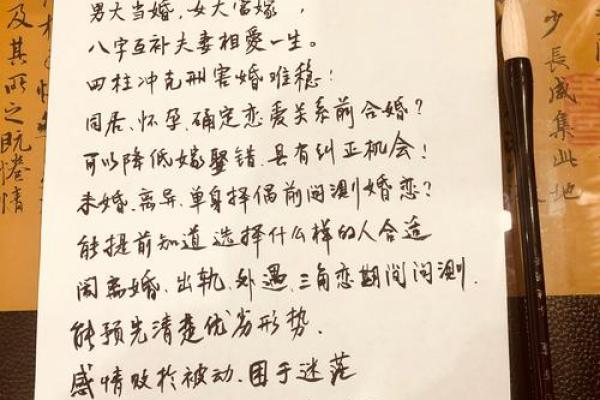 男大当婚,女大當嫁,
八字互补夫妻相愛一生。
四柱冲克刑害婚难稳!
同居、怀孕、确定恋爱关系前合婚?
可以降低嫁娶错、具有纠正机会!
未婚、离异、单身择偶前问测婚恋?
能提前知道选择什么样的人合适
闹离婚、出轨、外遇、三角恋期间问测.
能预先清楚优劣形势.
感情败扵被动、困于迷茫
少長咸集此地
及其所之既惓情